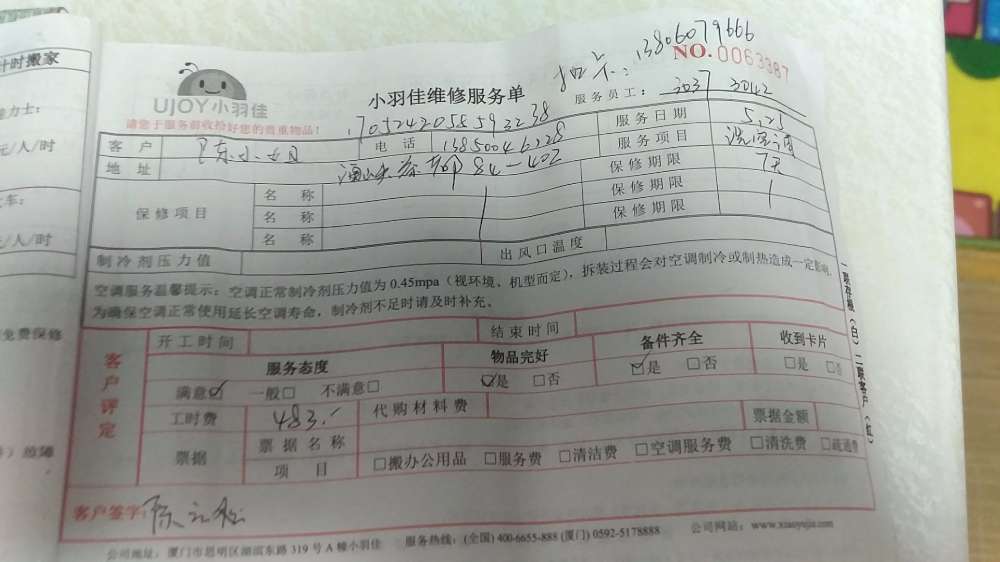 计时搬家
元/人/时
元/人/时
免费保修
故障
UJOY小羽佳
小羽佳维修服务单
13806079666
NO.0063387
请您于服务前收拾好您的贵重物品!
1705242058593238
服务员工: 3037 3042
客户 陈小姐 电话 13850046228 服务日期 5.25
地址 84-402 服务项目 洗空调
保修项目 名称 保修期限 7天
名称 保修期限
名称 保修期限
制冷剂压力值 出风口温度
空调服务温馨提示:空调正常制冷剂压力值为0.45mpa(视环境、机型而定),拆装过程会对空调制冷或制热造成一定影响,
为确保空调正常使用延长空调寿命,制冷剂不足时请及时补充。
客户评定
开工时间 结束时间
服务态度 物品完好 备件齐全 收到卡片
满意☑ 一般□ 不满意□ ☑是 □否 ☑是 □否 □是 □否
工时费 483. 代购材料费
票据 票据名称 票据金额
项目 □搬办公用品 □服务费 □清洁费 □空调服务费 □清洗费 □疏通费
客户签字:
公司地址:厦门市思明区湖滨东路319号A幢小羽佳 服务热线:(全国)400-6655-888 (厦门)0592-5178888 公司网站:www.xiaoyujia.com
一联存根(白) 二联客户(红)